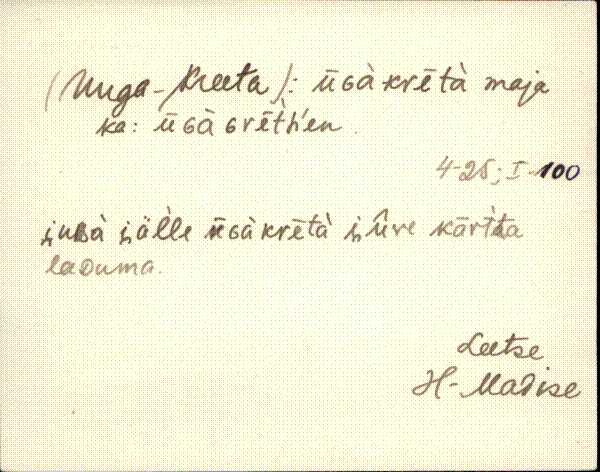 (Uuga-Kreeta): ūGà krētà maja
ka: ūGà Grēth'en.
4-25; I 100
jussà jälle ūGà krētà jûre kārtta
laDuma.
Leetse
H-Madise